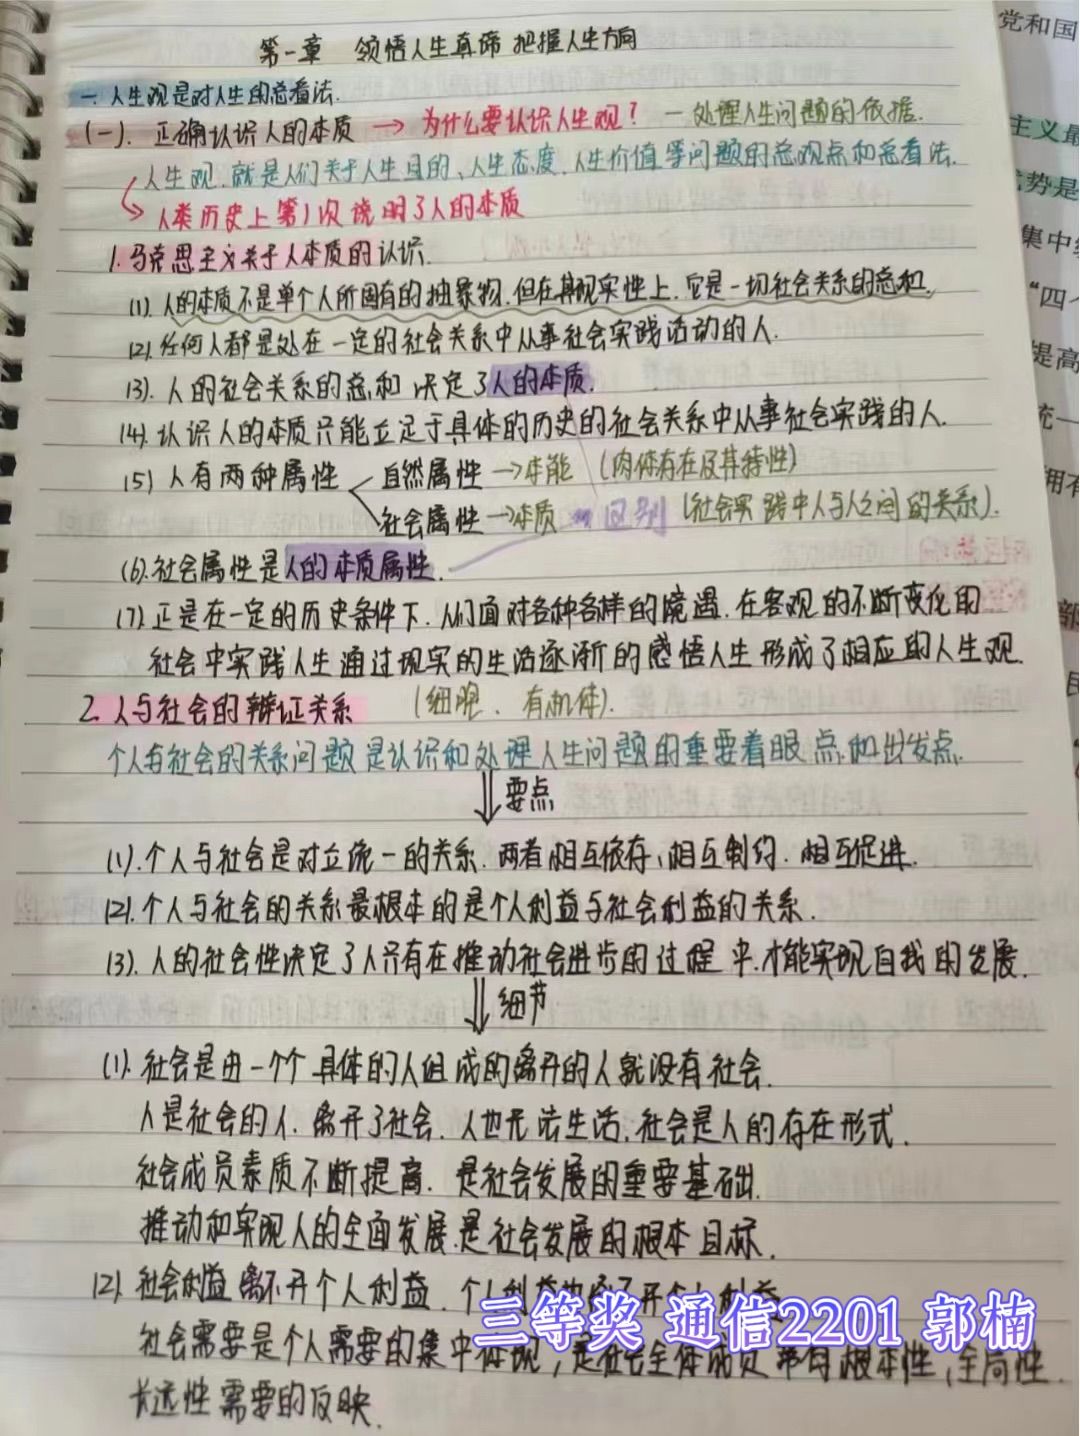 第一章 领悟人生真谛 把握人生方向
一.人生观是对人生的总看法.
(一).正确认识人的本质 → 为什么要认识人生观? 一处理人生问题的依据.
人生观.就是人们关于人生目的、人生态度.人生价值等问题的总观点和总看法.
人类历史上第1次说明了人的本质
1.马克思主义关于人本质的认识.
(1).人的本质不是单个人所固有的抽象物.但在其现实性上.它是一切社会关系的总和.
(2).任何人都是处在一定的社会关系中从事社会实践活动的人.
(3).人的社会关系的总和决定了人的本质.
(4).认识人的本质只能立足于具体的历史的社会关系中从事社会实践的人.
(5)人有两种属性
自然属性→本能 (肉体存在及其特性)
社会属性→本质 区别 (社会实践中人与人之间的关系).
(6).社会属性是人的本质属性.
(7).正是在一定的历史条件下.人们面对各种各样的境遇.在客观的不断变化的
社会中实践人生通过现实的生活逐渐的感悟人生形成了相应的人生观.
2.人与社会的辩证关系 (细胞、有机体).
个人与社会的关系问题是认识和处理人生问题的重要着眼点.和出发点.
要点
(1).个人与社会是对立统一的关系.两者相互依存、相互制约.相互促进.
(2).个人与社会的关系最根本的是个人利益与社会利益的关系.
(3).人的社会性决定了人只有在推动社会进步的过程中.才能实现自我的发展.
细节
(1).社会是由一个个具体的人组成的离开的人就没有社会.
人是社会的人.离开了社会.人也无法生活.社会是人的存在形式.
社会成员素质不断提高.是社会发展的重要基础.
推动和实现人的全面发展.是社会发展的根本目标.
(2).社会利益离不开个人利益.个人利益
三等奖 通信2201 郭楠
社会需要是个人需要的集中体现,是社会全体成员带有根本性、全局性.
长远性需要的反映.
党和国
主义最
优势是
集中
“四个
提高
统一
拥有